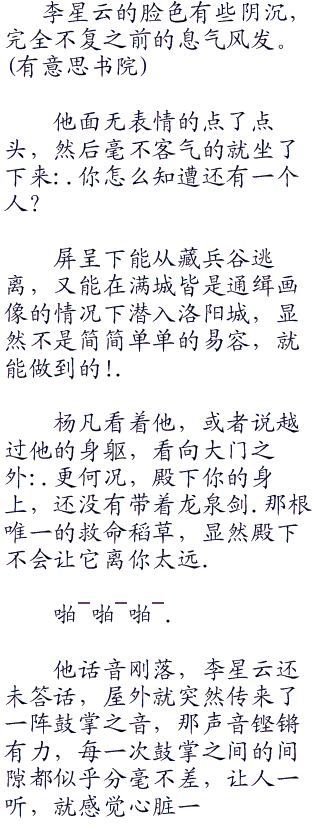 李星云的脸色有些阴沉，
完全不复之前的息气风发。
(有意思书院)
他面无表情的点了点
头，然后毫不客气的就坐了
下来:.你怎么知遭还有一个
人?
屏呈下能从藏兵谷逃
离，又能在满城皆是通缉画
像的情况下潜入洛阳城，显
然不是简简单单的易容，就
能做到的!.
杨凡看着他，或者说越
过他的身躯，看向大门之
外:.更何况，殿下你的身
上，还没有带着龙泉剑.那根
唯一的救命稻草，显然殿下
不会让它离你太远.
啪¯啪¯啪¯.
他话音刚落，李星云还
未答话，屋外就突然传来了
一阵鼓掌之音，那声音铿锵
有力，每一次鼓掌之间的间
隙都似乎分毫不差，让人一
听，就感觉心脏一